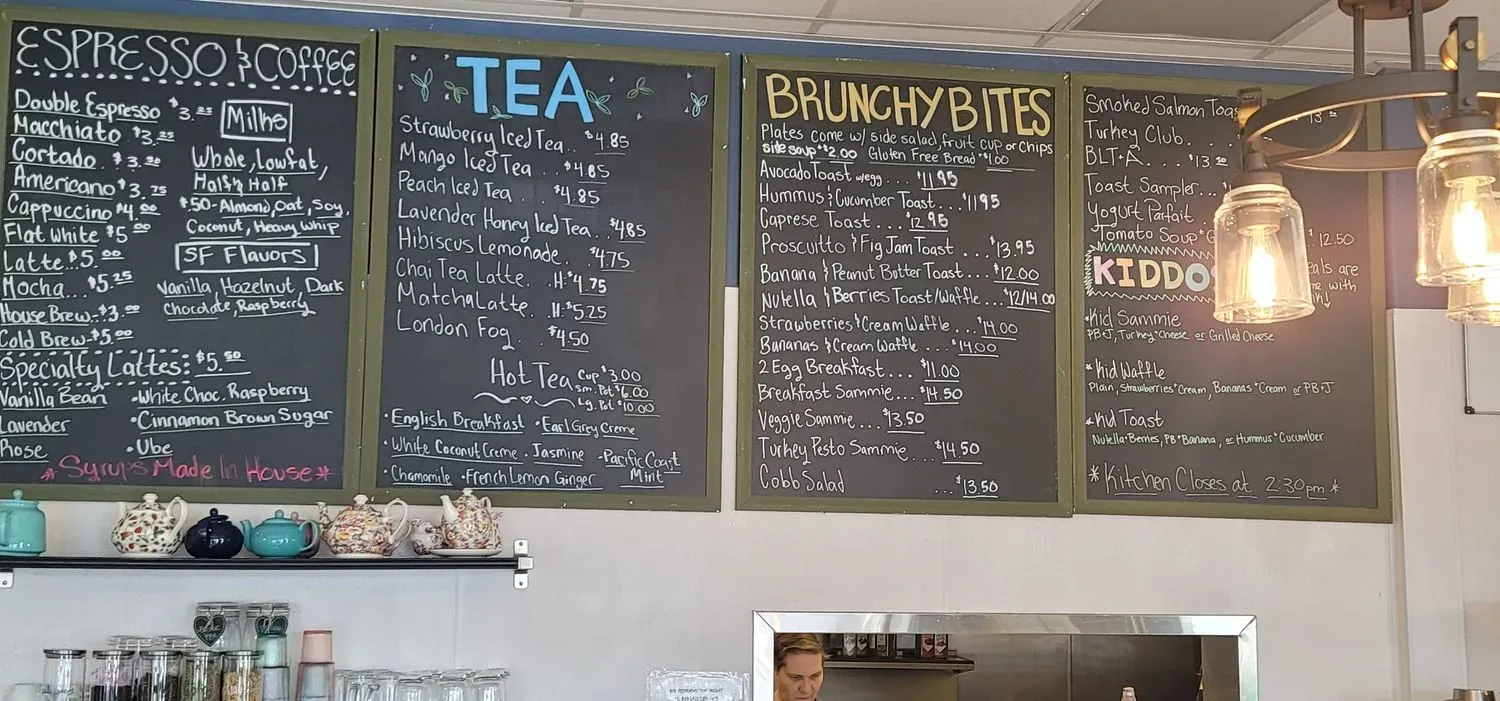 ESPRESSO & COFFEE
Double Espresso $3.25
Macchiato $3.25
Cortado $3.50
Americano $3.75
Cappuccino $4.00
Flat White $5.00
Latte $5.00
Mocha... $5.25
House Brew.. $3.00
Cold Brew.. $5.00
Milks
Whole, Lowfat,
Half & Half
$.50 - Almond, Oat, Soy,
Coconut, Heavy Whip
SF Flavors
Vanilla, Hazelnut, Dark
Chocolate, Raspberry
Specialty Lattes: $5.50
Vanilla Bean
Lavender
Rose
• White Choc. Raspberry
• Cinnamon Brown Sugar
• Ube
* Syrups Made In House *
TEA
Strawberry Iced Tea.. $4.85
Mango Iced Tea ... $4.85
Peach Iced Tea . $4.85
Lavender Honey Iced Tea.. $4.85
Hibiscus Lemonade. $4.75
Chai Tea Latte. .H- $4.75
Matcha Latte. H- $5.25
London Fog. . . $4.50
Hot Tea
Cup $3.00
Sm. Pot $6.00
Lg. Pot $10.00
• English Breakfast • Earl Grey Creme
• White Coconut Creme • Jasmine • Pacific Coast
Mint
• Chamomile • French Lemon Ginger
BRUNCHY BITES
Plates come w/ side salad, fruit cup or chips
side soup +$2.00 Gluten Free Bread +$1.00
Avocado Toast w/egg ... $11.95
Hummus & Cucumber Toast... $11.95
Caprese Toast ... $12.95
Proscuitto & Fig Jam Toast ... $13.95
Banana & Peanut Butter Toast... $12.00
Nutella & Berries Toast/Waffle... $12/14.00
Strawberries & Cream Waffle ... $14.00
Bananas & Cream Waffle ... $14.00
2 Egg Breakfast... $11.00
Breakfast Sammie.... $14.50
Veggie Sammie... $13.50
Turkey Pesto Sammie... $14.50
Cobb Salad ... $13.50
Smoked Salmon Toas
Turkey Club. . .
BLT+A. . . $13.50
Toast Sampler...
Yogurt Parfait .
Tomato Soup + G $12.50
KIDDO
eals are
with
• Kid Sammie
PB+J, Turkey + Cheese or Grilled Cheese
* Kid Waffle
Plain, Strawberries + Cream, Bananas + Cream or PB+J
* Kid Toast
Nutella + Berries, PB + Banana, or Hummus + Cucumber
* Kitchen Closes at 2:30pm *
WE RESERVE THE RIGHT
TO REFUSE SERVICE